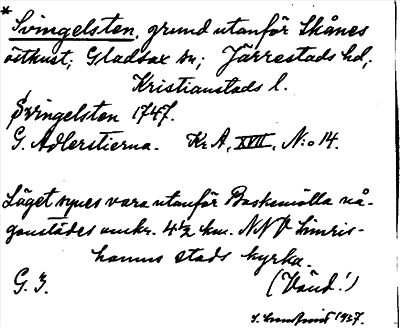 * Svingelsten, grund utanför Skånes
östkust; Gladsax sn; Järrestads hd;
Kristianstads l.
Svingelsten 1747.
G. Adlerstierna. Kr. A, XVII, N:o 14.
Läget synes vara utanför Baskemölla nå-
gonstädes omkr. 4½ km. NNV Simris-
hamns stads kyrka.
G. 3. (Vänd!)
1937.